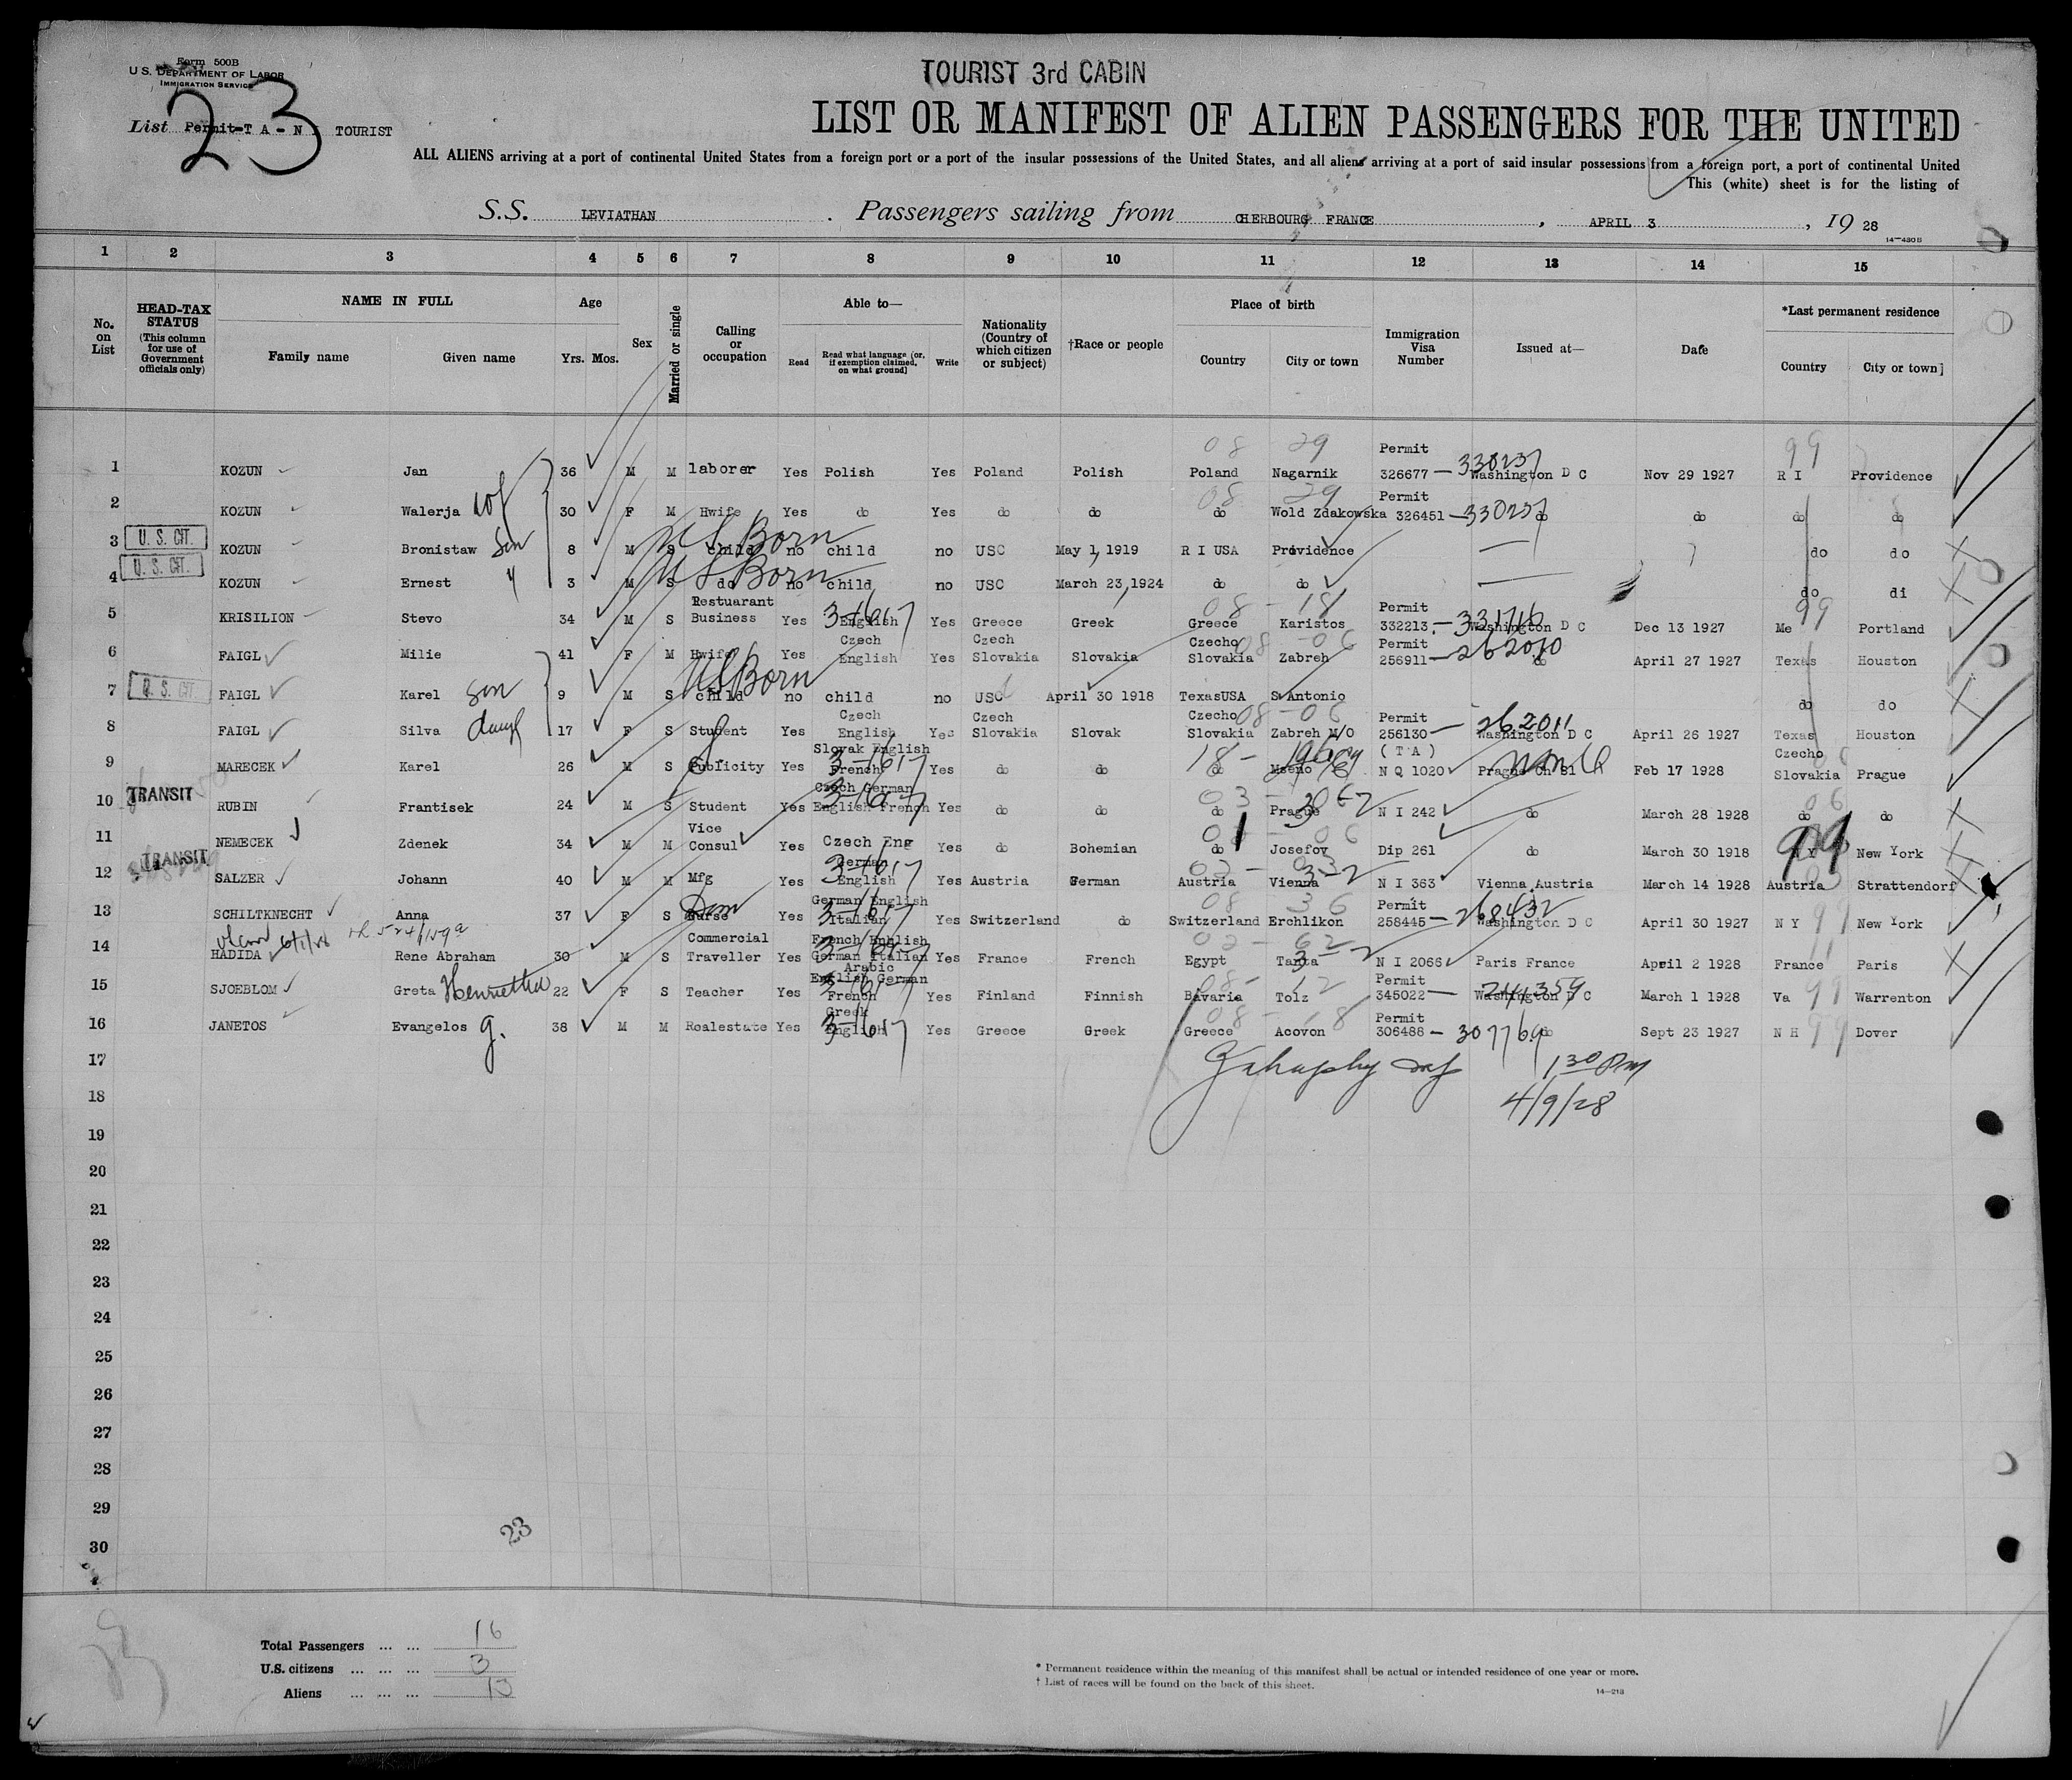 Form 500B
U.S. DEPARTMENT OF LABOR
IMMIGRATION SERVICE
TOURIST 3rd CABIN
23
List Permit-T A - N TOURIST
LIST OR MANIFEST OF ALIEN PASSENGERS FOR THE UNITED
ALL ALIENS arriving at a port of continental United States from a foreign port or a port of the insular possessions of the United States, and all aliens arriving at a port of said insular possessions from a foreign port, a port of continental United
This (white) sheet is for the listing of
S.S. LEVIATHAN . Passengers sailing from CHERBOURG FRANCE , APRIL 3 , 19 28
14—430B
1 2 3 4 5 6 7 8 9 10 11 12 13 14 15
No. on List HEAD-TAX STATUS (This column for use of Government officials only) NAME IN FULL Family name Given name Age Yrs. Mos. Sex Married or single Calling or occupation Able to— Read Read what language [or, if exemption claimed, on what ground] Write Nationality (Country of which citizen or subject) †Race or people Place of birth Country City or town Immigration Visa Number Issued at— Date *Last permanent residence Country City or town]
08 29 Permit 99
1 KOZUN Jan 36 M M laborer Yes Polish Yes Poland Polish Poland Nagarnik 326677 — 330237 Washington D C Nov 29 1927 R I Providence
08 29 Permit
2 KOZUN Walerja wf 30 F M Hwife Yes do Yes do do do Wold Zdakowska 326451 — 330257 do do do do
3 U. S. CIT. KOZUN Bronistaw son 8 M S child US Born no child no USC May 1, 1919 R I USA Providence — do do
4 U. S. CIT. KOZUN Ernest 3 M S do US Born no child no USC March 23, 1924 do do — do di
Restuarant 08 - 18 Permit 99
5 KRISILION Stevo 34 M S Business Yes English Yes Greece Greek Greece Karistos 332213 — 331716 Washington D C Dec 13 1927 Me Portland
Czech Czech Czecho 08 - 06 Permit
6 FAIGL Milie 41 F M Hwife Yes English Yes Slovakia Slovakia Slovakia Zabreh 256911 — 262010 do April 27 1927 Texas Houston
7 U. S. CIT. FAIGL Karel son 9 M S child US Born no child no USC April 30 1918 TexasUSA S Antonio do do
Czech Czech Czecho 08 - 06 Permit
8 FAIGL Silva daug 17 F S Student Yes English Yes Slovakia Slovak Slovakia Zabreh M/O 256130 — 262011 Washington D C April 26 1927 Texas Houston
Slovak English (TA) Czecho
9 MARECEK Karel 26 M S Publicity Yes French Yes do do do Mseno N Q 1020 Prague Feb 17 1928 Slovakia Prague
TRANSIT Czech German
10 RUBIN Frantisek 24 M S Student Yes English French Yes do do do Prague N I 242 do March 28 1928 do do
Vice
11 NEMECEK Zdenek 34 M M Consul Yes Czech Eng Yes do Bohemian do Josefov Dip 261 do March 30 1918 N Y 99 New York
TRANSIT German
12 SALZER Johann 40 M M Mfg Yes English Yes Austria German Austria Vienna N I 363 Vienna Austria March 14 1928 Austria Strattendorf
German English 08 36 Permit
13 SCHILTKNECHT Anna 37 F S Nurse Dom Yes Italian Yes Switzerland do Switzerland Erchlikon 258445 — 268432 Washington D C April 30 1927 N Y 99 New York
Commercial French English
14 HADIDA Rene Abraham 30 M S Traveller Yes German Italian Yes France French Egypt Tanta N I 2066 Paris France April 2 1928 France Paris
Arabic
English German 08 - 12 Permit
15 SJOEBLOM Greta Henrietta 22 F S Teacher Yes French Yes Finland Finnish Bavaria Tolz 345022 — 244359 Washington D C March 1 1928 Va 99 Warrenton
Greek 08 - 18 Permit
16 JANETOS Evangelos G. 38 M M Realestate Yes English Yes Greece Greek Greece Acovon 306488 — 307769 do Sept 23 1927 N H 99 Dover
17 1 30 PM
18 4/9/28
19
20
21
22
23
24
25
26
27
28
29
23
30
Total Passengers ... ... 16
U.S. citizens ... ... ... 3
Aliens ... ... ... 13
* Permanent residence within the meaning of this manifest shall be actual or intended residence of one year or more.
† List of races will be found on the back of this sheet.
14—213